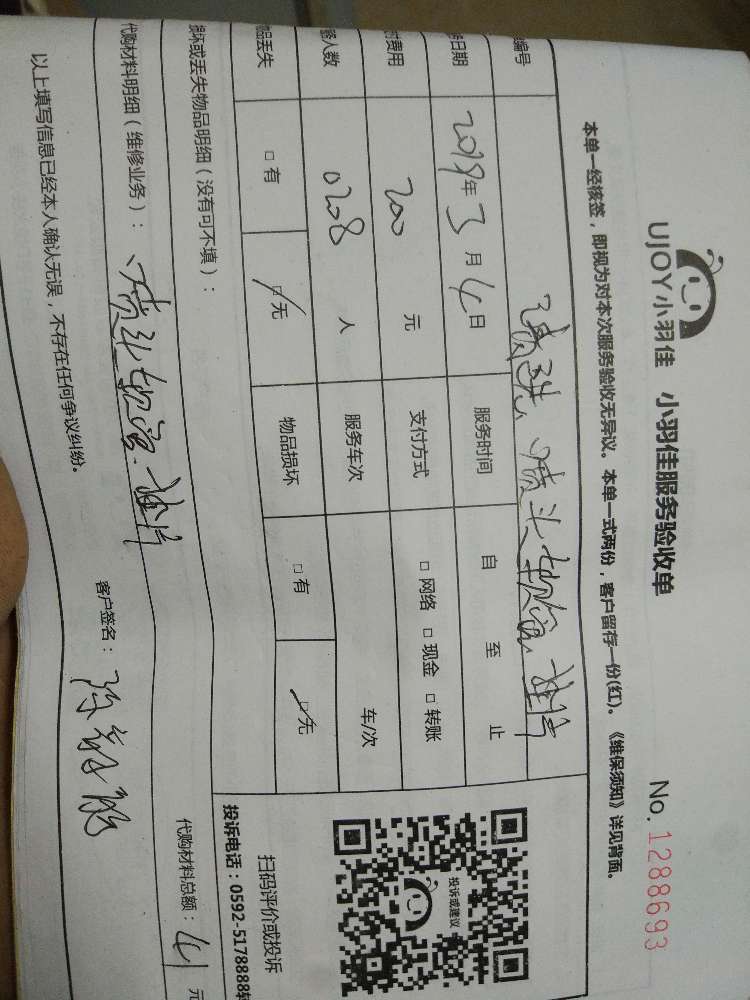 UJOY小羽佳 小羽佳服务验收单 No.1288693
本单一经核签，即视为对本次服务验收无异议。本单一式两份，客户留存一份(红)。《维保须知》详见背面。
编号 清洗 喷头
日期 2019年3月4日 服务时间 自 至 止
费用 200 元 支付方式 □网络 □现金 □转账
人数 0208 人 服务车次 车/次
品丢失 □有 □无 物品损坏 □有 □无
投诉或建议
扫码评价或投诉
投诉电话：0592-5178888转
损坏或丢失物品明细（没有可不填）：
代购材料明细（维修业务）： 喷头 代购材料总额：41 元
以上填写信息已经本人确认无误，不存在任何争议纠纷。 客户签名：